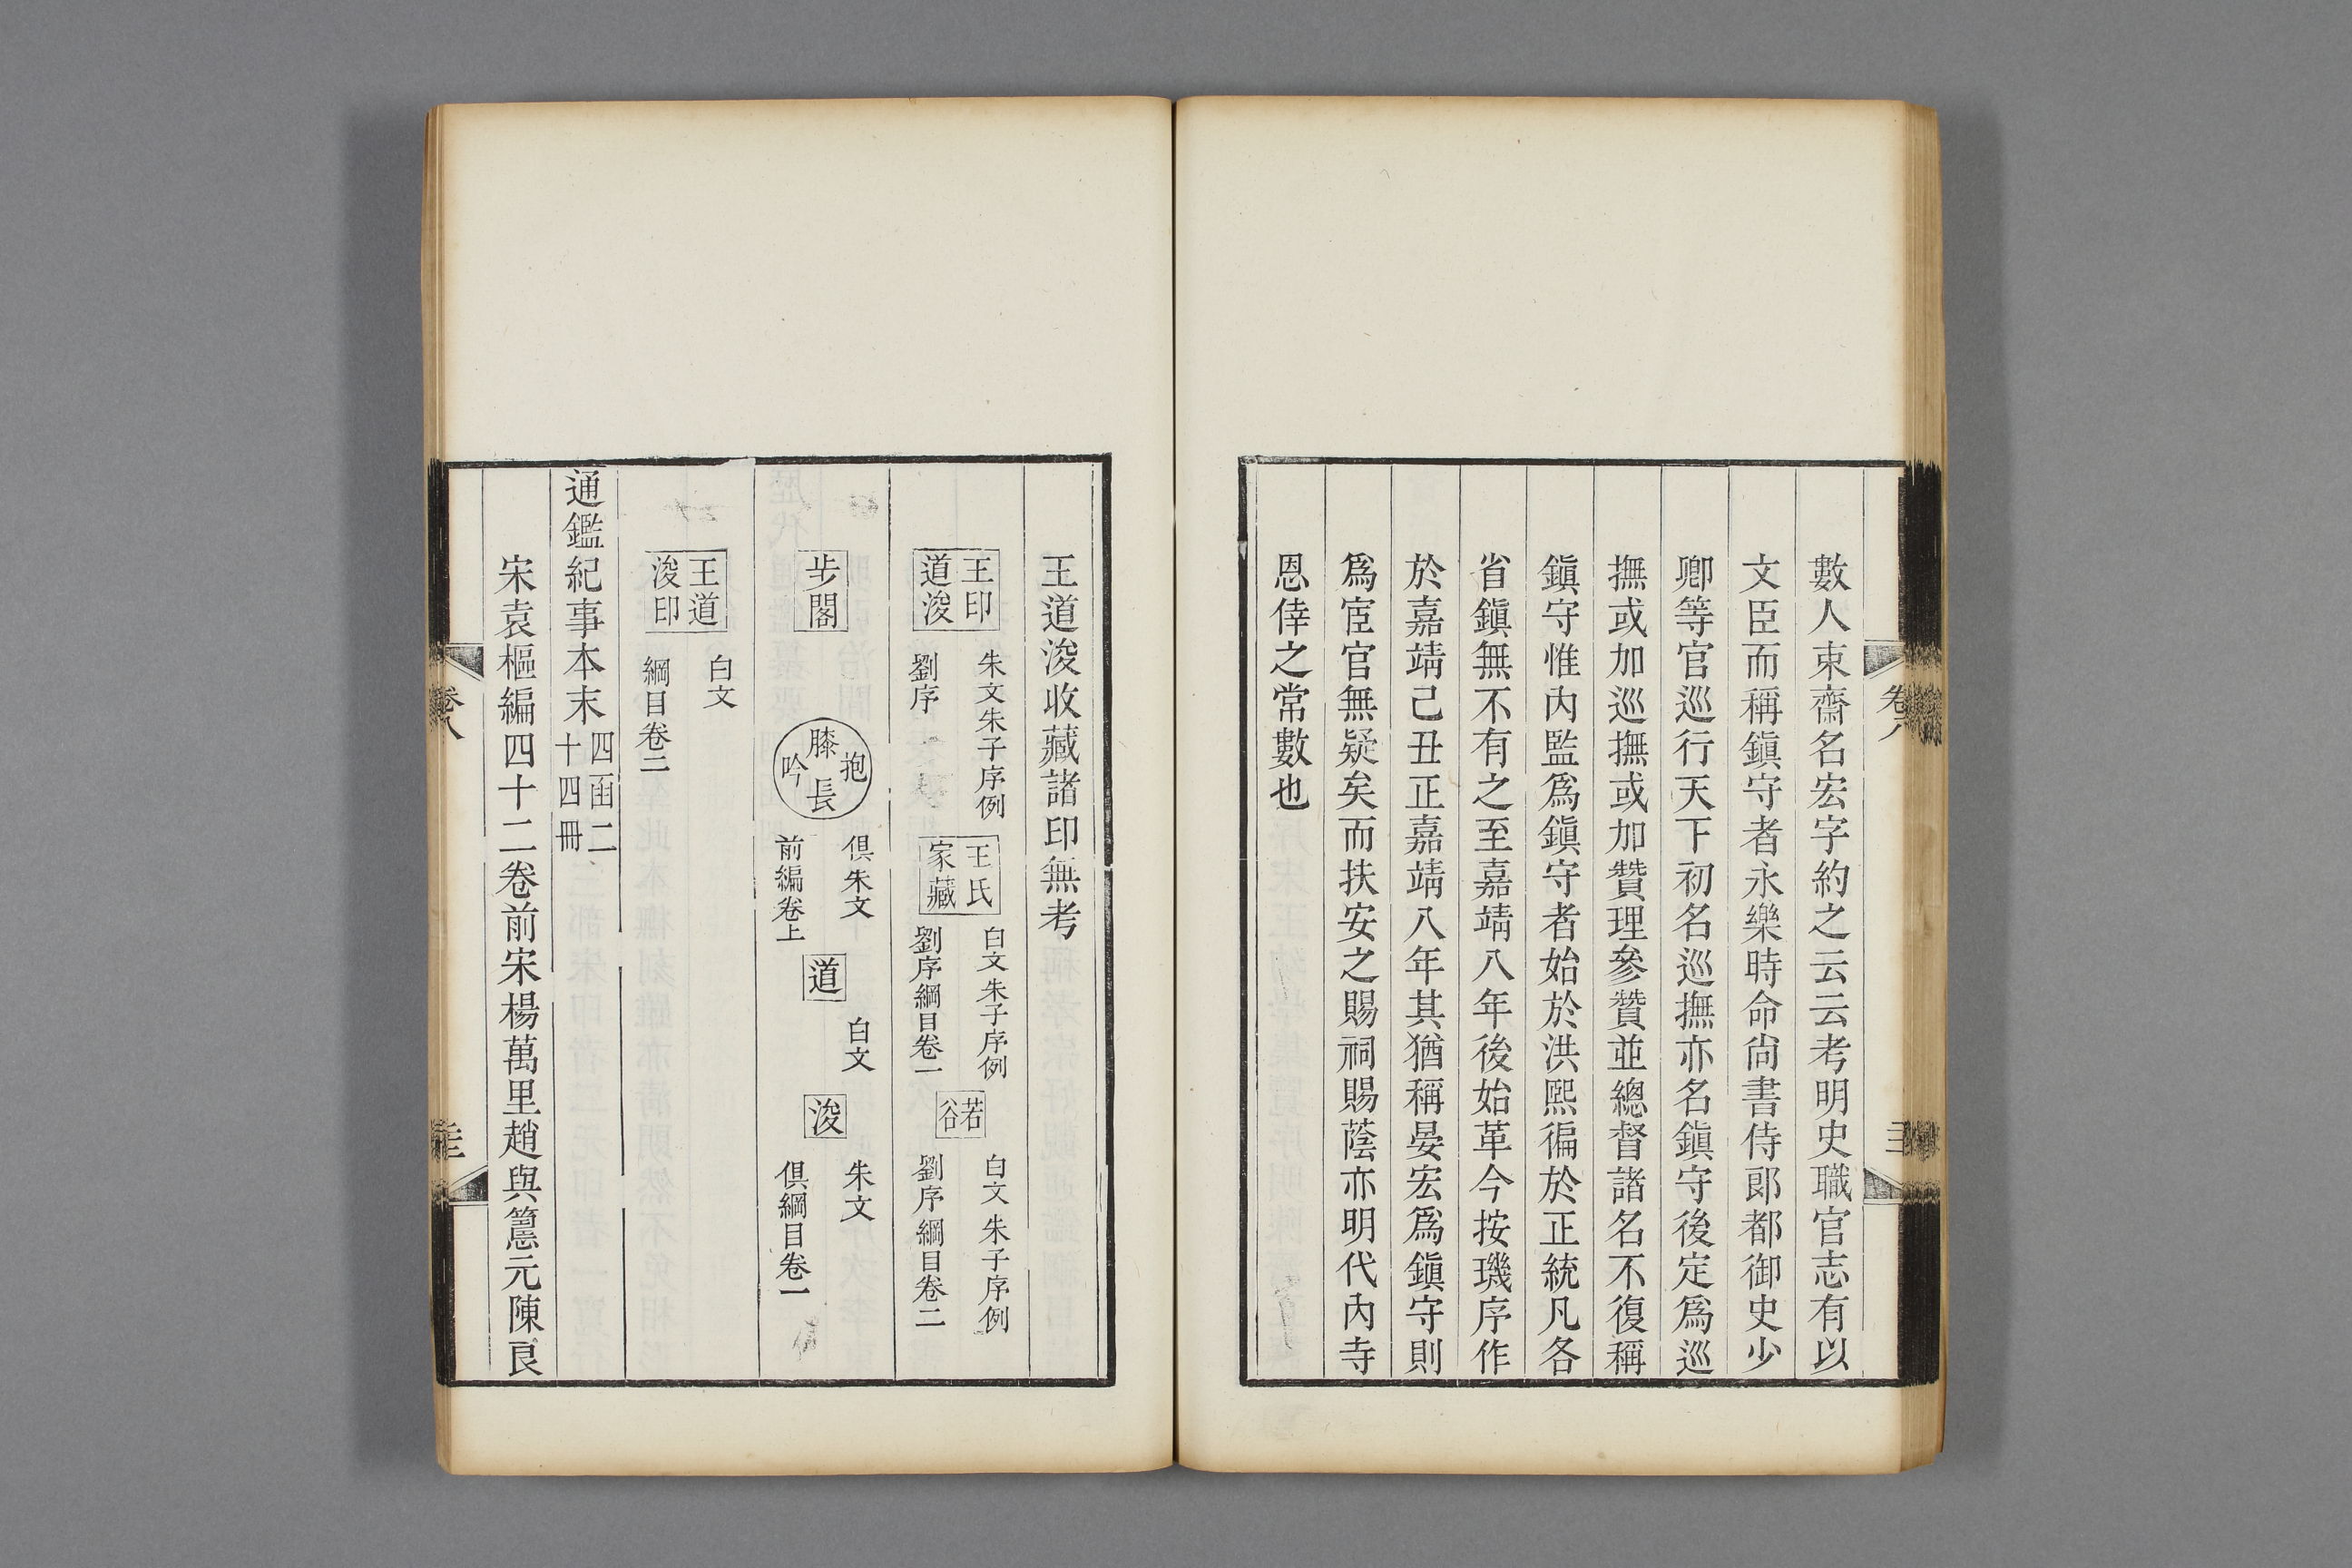 數人束齋名宏字約之云云考明史職官志有以
文臣而稱鎭守者永樂時命尙書侍郞都御史少
卿等官巡行天下初名巡撫亦名鎭守後定爲巡
撫或加巡撫或加贊理參贊並總督諸名不復稱
鎭守惟內監爲鎭守者始於洪熙徧於正統凡各
省鎭無不有之至嘉靖八年後始革今按璣序作
於嘉靖己丑正嘉靖八年其猶稱晏宏爲鎭守則
爲宦官無疑矣而扶安之賜祠賜蔭亦明代內寺
恩倖之常數也
卷八
王道浚收藏諸印無考
王印道浚 朱文朱子序例劉序 王氏家藏 白文朱子序例劉序綱目卷一 若谷 白文朱子序例劉序綱目卷二
步閣 抱膝長吟 俱朱文前編卷上 道 白文 浚 朱文俱綱目卷一
王道浚印 白文綱目卷二
通鑑紀事本末 四函二十四冊
宋袁樞編四十二卷前宋楊萬里趙與𥲅元陳良
卷八